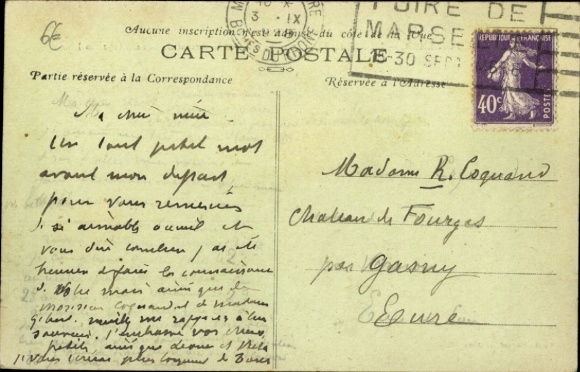 6€
3 IX
B DU RHONE
FOIRE DE
MARSEILLE
15-30 SEPT
REPUBLIQUE FRANÇAISE
40c
POSTES
Aucune inscription n'est admise du côté de la Vue
CARTE POSTALE
Partie réservée à la Correspondance
Réservée à l'Adresse
Ma chère
Un tout petit mot
avant mon départ
pour vous remercier
d si aimable accueil et
vous dire combien j'ai été
heureux de faire la connaissance
d votre mari ainsi que de
Monsieur Coquand et de Madame
veuillez me rappeler à leur
souvenir. J'embrasse vos deux
petits ainsi que
Madame R. Coquand
Chateau de Fourges
par Gasny
Eure